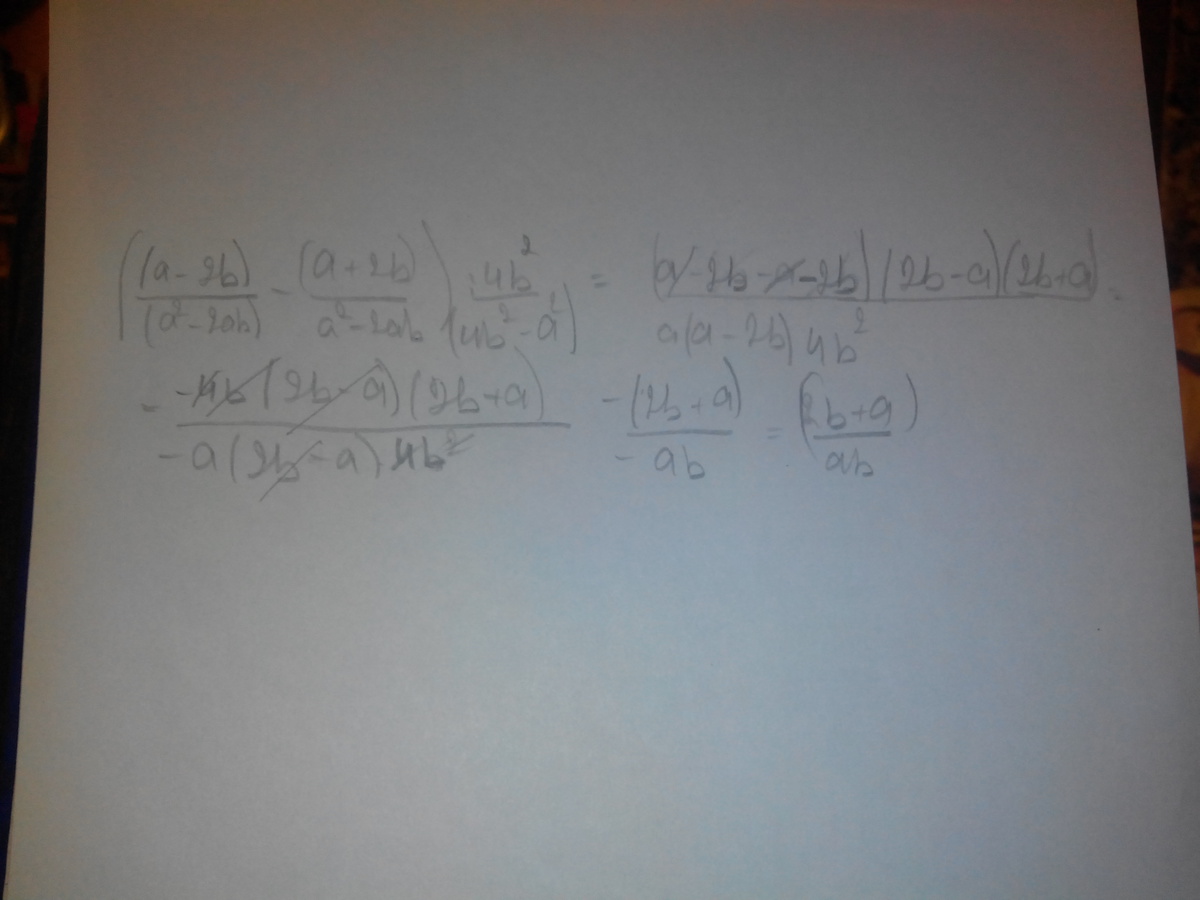 ((a-2b)/(a²-2ab) - (a+2b)/(a²-2ab)) : 4b²/(4b²-a²) = (a-2b-a-2b)(2b-a)(2b+a)/(a(a-2b)4b²) =
= -4b(2b-a)(2b+a)/(-a(2b-a)4b²) -(2b+a)/(-ab) = (2b+a)/(ab)